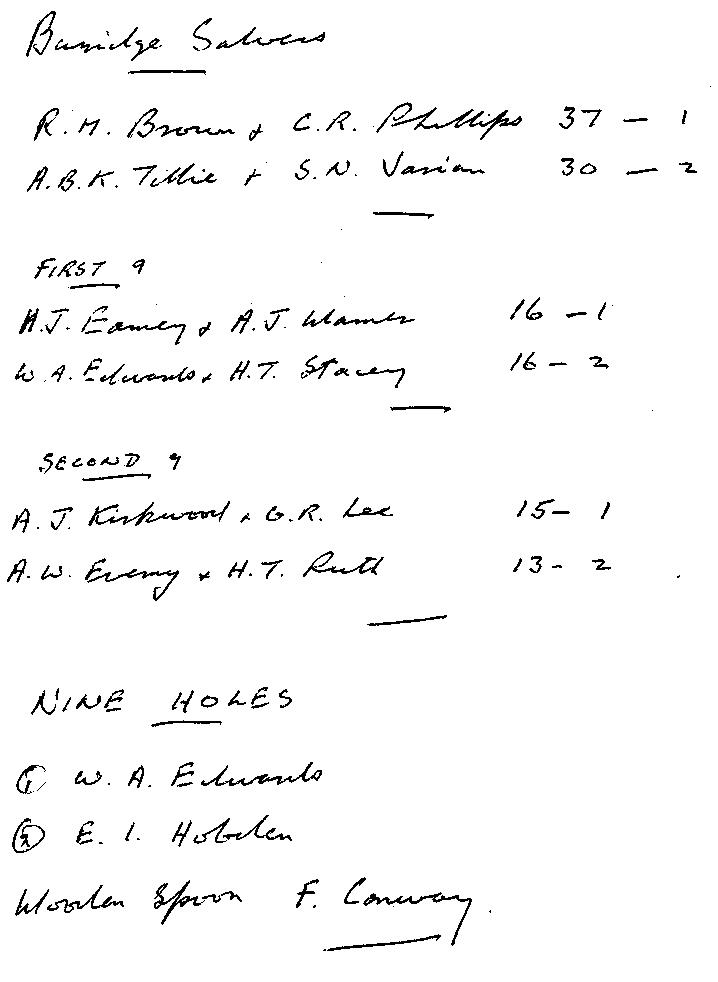 Burridge Salvers
R.H. Brown & C.R. Phillips 37 - 1
A.B.K. Tillie + S.N. Varian 30 - 2
FIRST 9
A.J. Eamey & A.J. Warner 16 - 1
W.A. Edwards & H.T. Stacey 16 - 2
SECOND 9
A.J. Kirkwood & G.R. Lee 15 - 1
A.W. Evemy & H.T. Ruth 13 - 2
NINE HOLES
① W. A. Edwards
② E. I. Hobden
Wooden Spoon F. Conway.